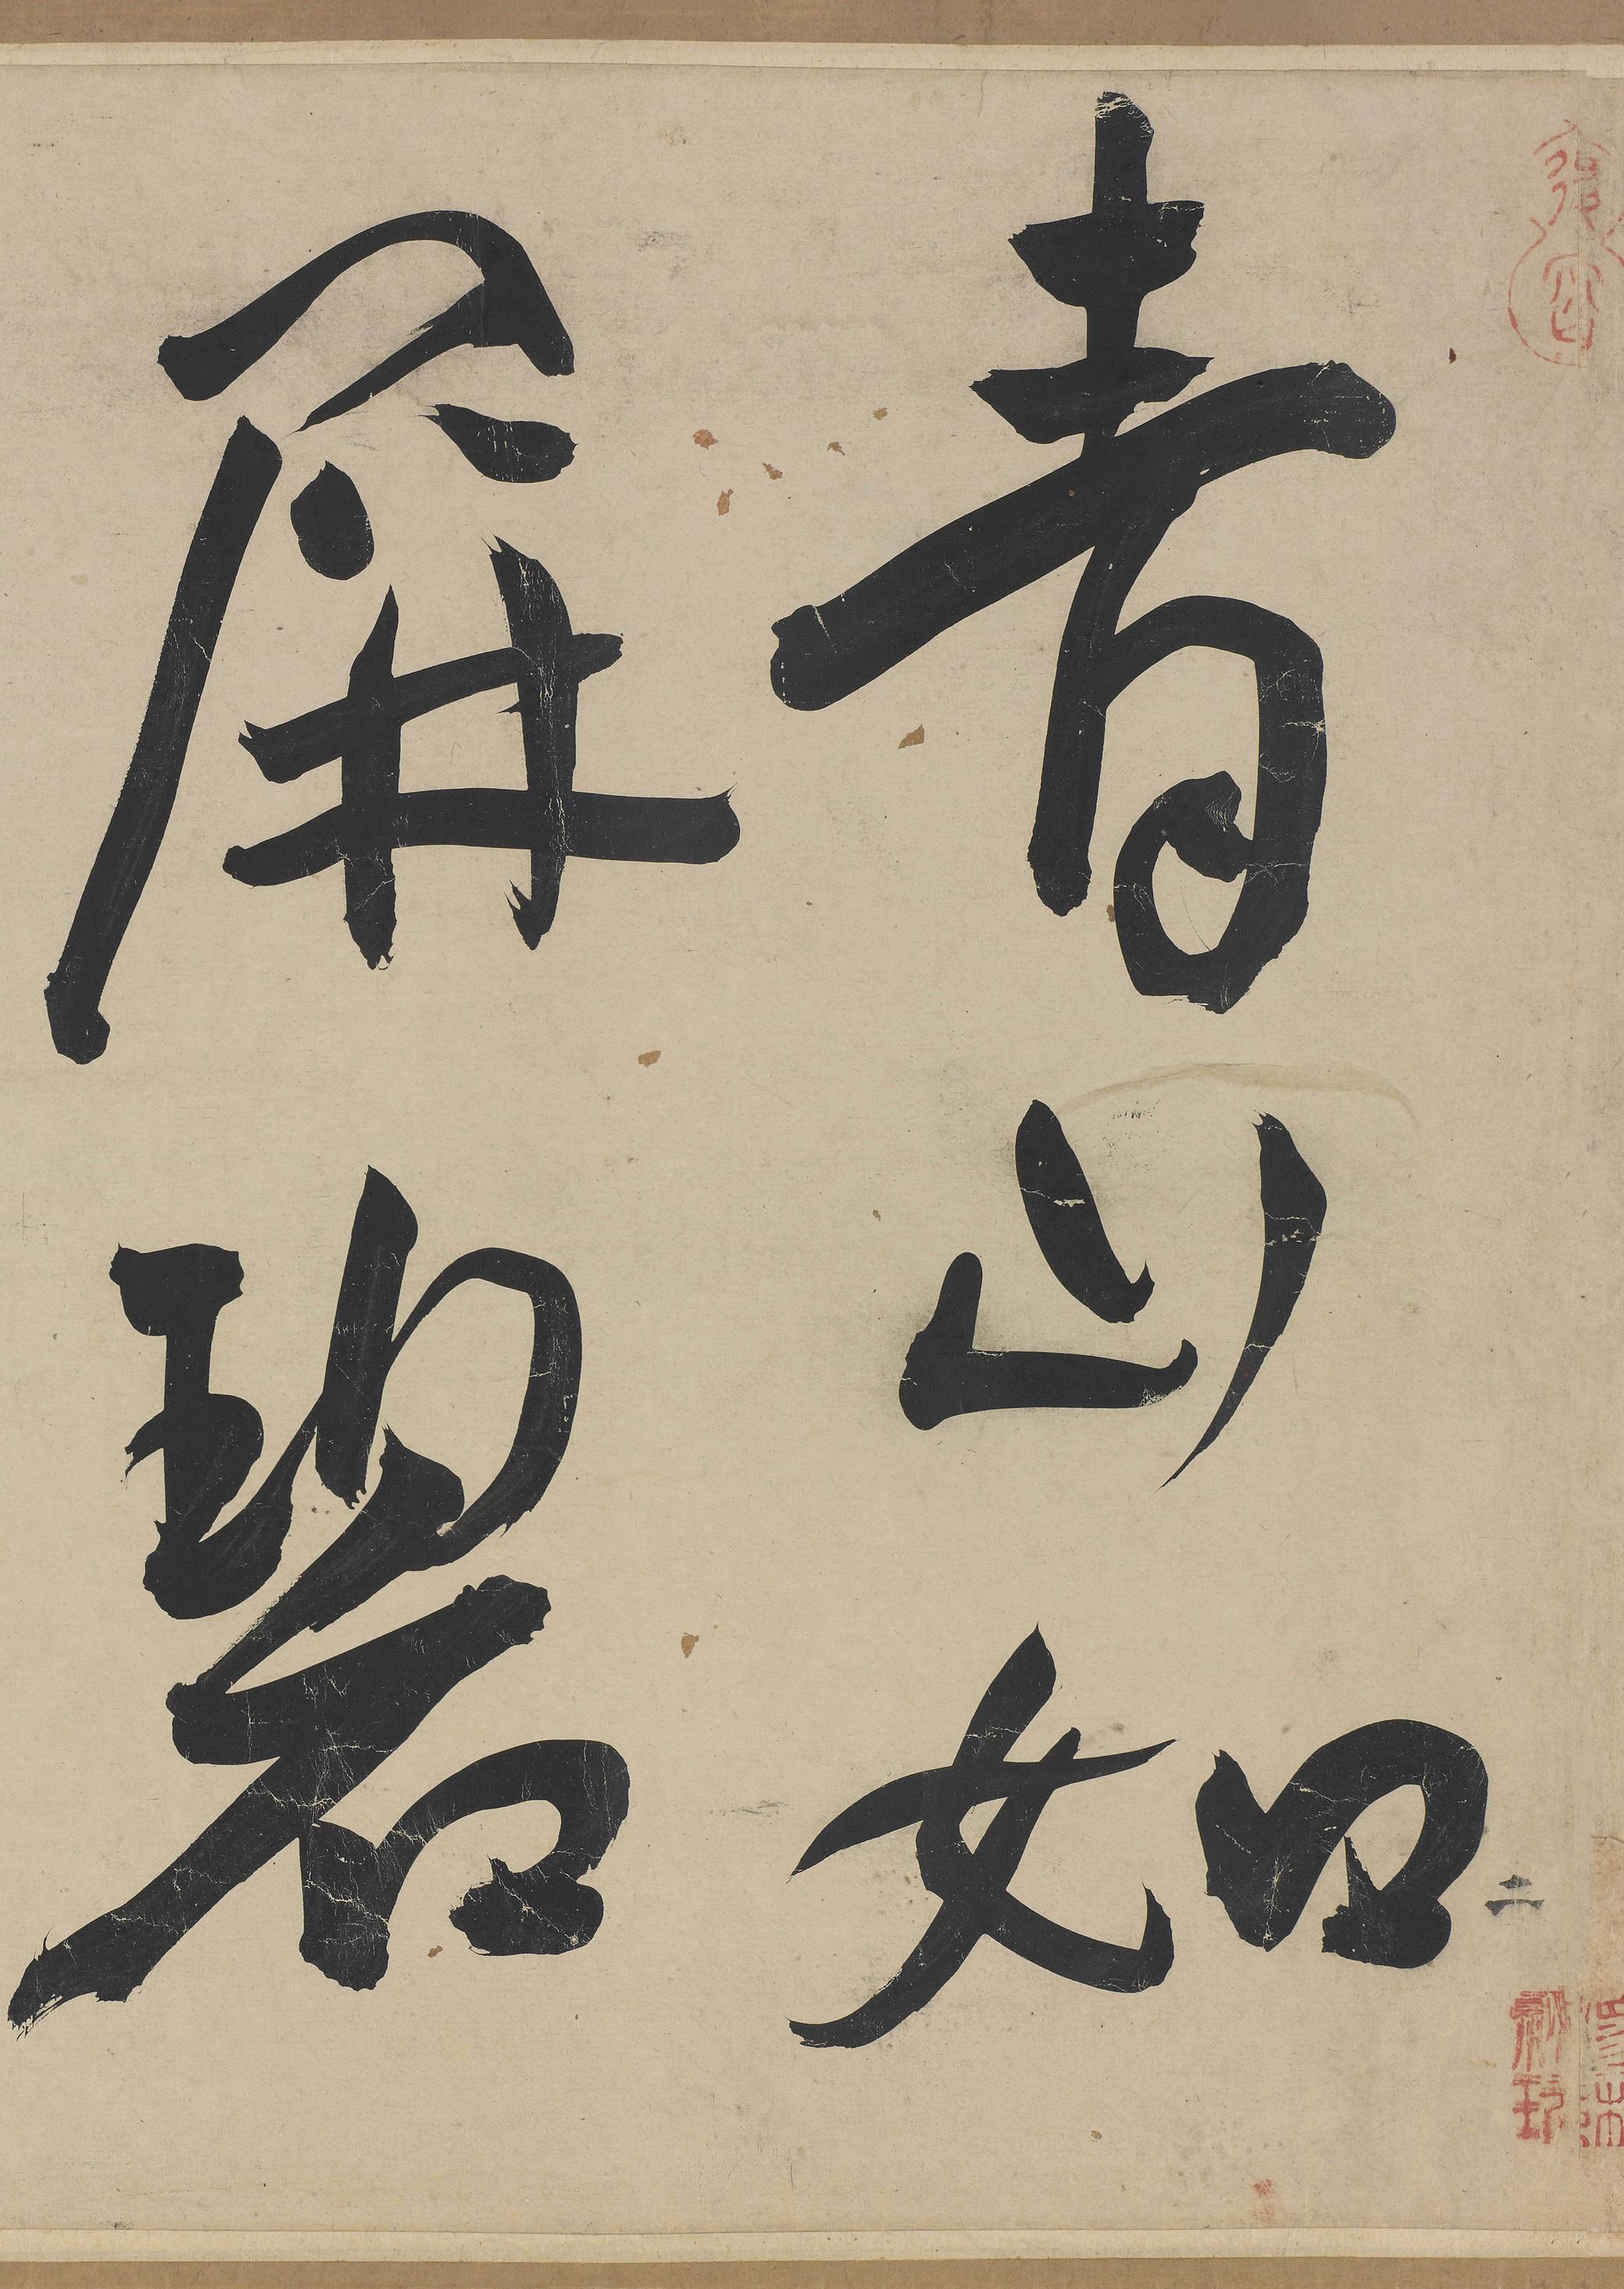 青山如
屏碧
二